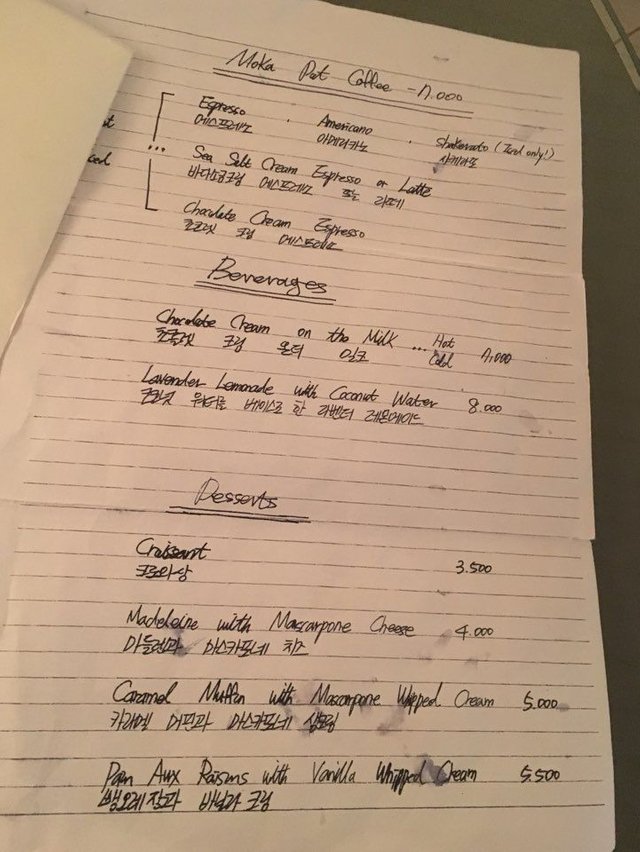 Moka Pot Coffee - 7.000
Espresso · Americano · Shakerato (Iced only!)
에스프레소 아메리카노 샤케라또
Sea Salt Cream Espresso or Latte
바다소금크림 에스프레소 또는 라떼
Chocolate Cream Espresso
초콜릿 크림 에스프레소
Beverages
Chocolate Cream on the Milk ... Hot Cold 7,000
초콜렛 크림 온더 밀크
Lavender Lemonade with Coconut Water 8.000
코코넛 워터를 베이스로 한 라벤더 레몬에이드
Desserts
Croissant 3.500
크로와상
Madeleine with Mascarpone Cheese 4.000
마들렌과 마스카포네 치즈
Caramel Muffin with Mascarpone Whipped Cream 5.000
카라멜 머핀과 마스카포네
Pain Aux Raisins with Vanilla Whipped Cream 5.500
바닐라 크림